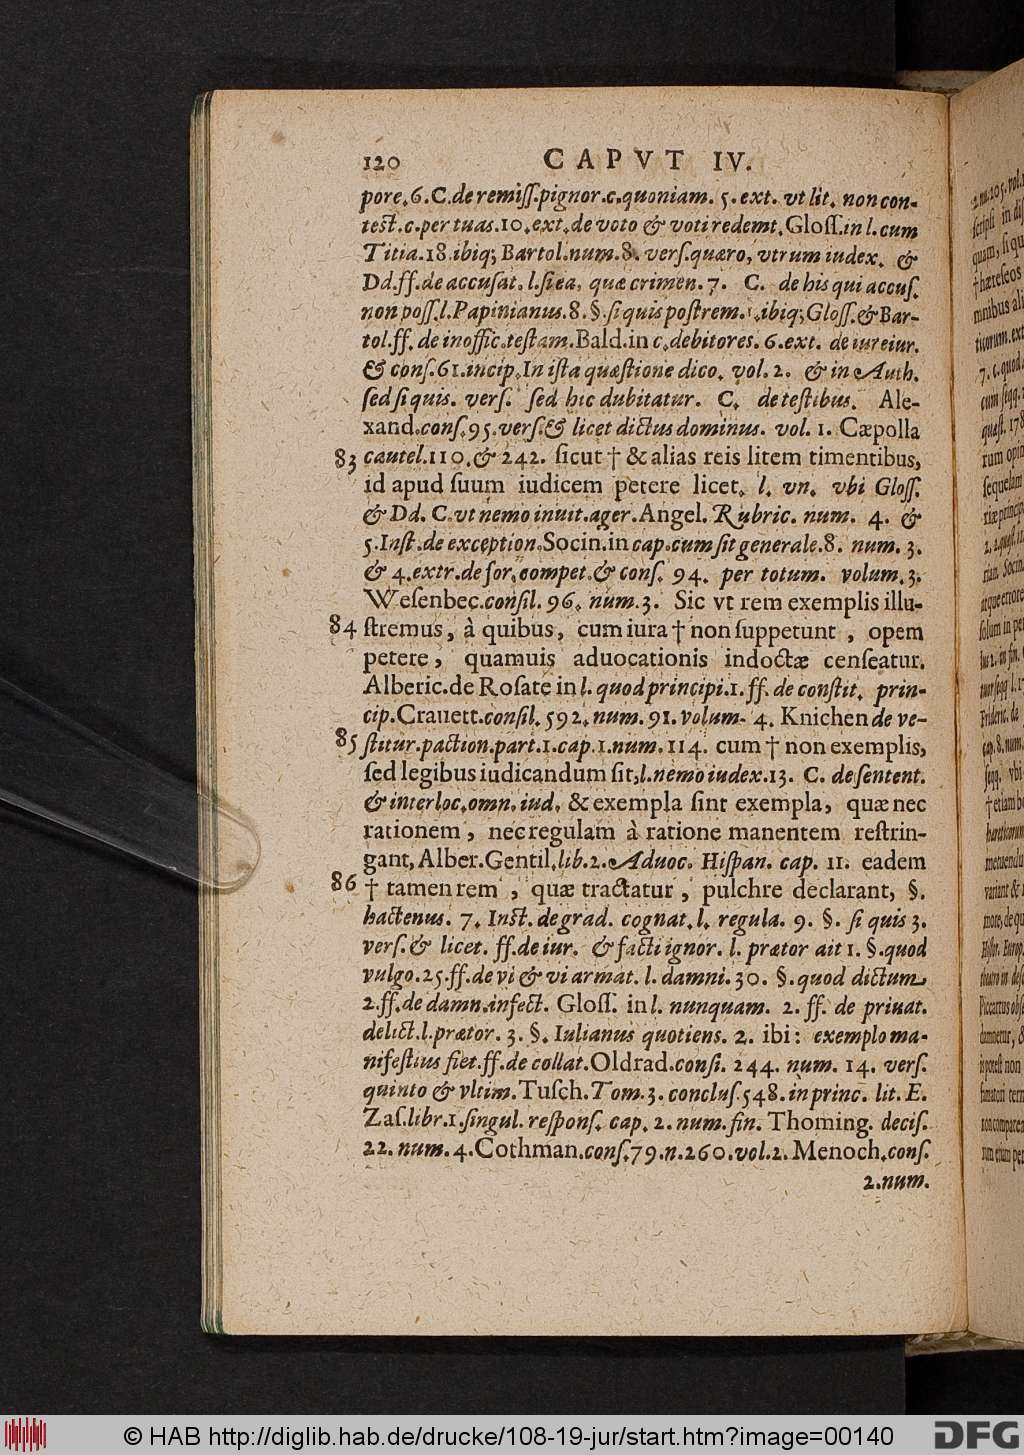 120 CAPVT IV.
pore.6.C.de remiſſ.pignor.c.quoniam. 5.ext. vt lit. non con-
test.c.per tuas.10.ext.de voto & voti redemt.Gloſſ.in l.cum
Titia.18.ibiq; Bartol.num.8. verſ.quæro, vtrum iudex. &
Dd.ff.de accuſat. l.ſi ea, quæ crimen.7. C. de his qui accuſ.
non poſſ.l.Papinianus.8.§.ſi quis poſtrem. .ibiq;Gloſſ.& Bar-
tol.ff. de inoffic.teſtam.Bald.in c.debitores.6.ext. de iureiur.
& conſ.61.incip.In iſta quæſtione dico. vol.2. & in Auth.
ſed ſi quis. verſ. ſed hic dubitatur. C. de teſtibus. Ale-
xand.conſ.95.verſ.& licet dictus dominus. vol. 1. Cæpolla
83 cautel.110.& 242. ſicut † & alias reis litem timentibus,
id apud ſuum iudicem petere licet. l. vn. vbi Gloſſ.
& Dd. C.vt nemo inuit.ager.Angel. Rubric. num. 4. &
5.Inſt.de exception.Socin.in cap.cum ſit generale.8. num. 3.
& 4.extr.de for.compet.& conſ. 94. per totum. volum.3.
Weſenbec.conſil. 96. num.3. Sic vt rem exemplis illu-
84 ſtremus, à quibus, cum iura † non ſuppetunt , opem
petere, quamuis aduocationis indoctæ cenſeatur.
Alberic.de Roſate in l. quod principi.1.ff.de conſtit. prin-
cip.Crauett.conſil. 592.num.91.volum. 4. Knichen de ve-
85 ſtitur.paction.part.1.cap.1.num.114. cum † non exemplis,
ſed legibus iudicandum ſit,l.nemo iudex.13. C. de ſentent.
& interloc.omn.iud. & exempla ſint exempla, quæ nec
rationem, nec regulam à ratione manentem reſtrin-
gant, Alber.Gentil.lib.2.Aduoc. Hiſpan. cap. 11. eadem
86 † tamen rem , quæ tractatur, pulchre declarant, §.
hactenus. 7. Inſt. de grad. cognat.l. regula. 9. §. ſi quis 3.
verſ.& licet. ff.de iur. & facti ignor. l. prætor ait 1. §.quod
vulgo.25.ff.de vi & vi armat. l. damni.30. §.quod dictum
2.ff.de damn.infect. Gloſſ. in l. nunquam. 2. ff. de priuat.
delict.l.prætor. 3. §. Iulianus quotiens. 2. ibi: exemplo ma-
nifeſtius fiet.ff.de collat.Oldrad.conſi. 244. num. 14. verſ.
quinto & vltim.Tuſch.Tom.3. concluſ.548.in princ. lit. E.
Zaſ.libr.1.ſingul. reſponſ. cap. 2.num.fin. Thoming. deciſ.
22. num.4.Cothman.conſ.79.n.260.vol.2. Menoch.conſ.
2.num.
© HAB http://diglib.hab.de/drucke/108-19-jur/start.htm?image=00140
DFG